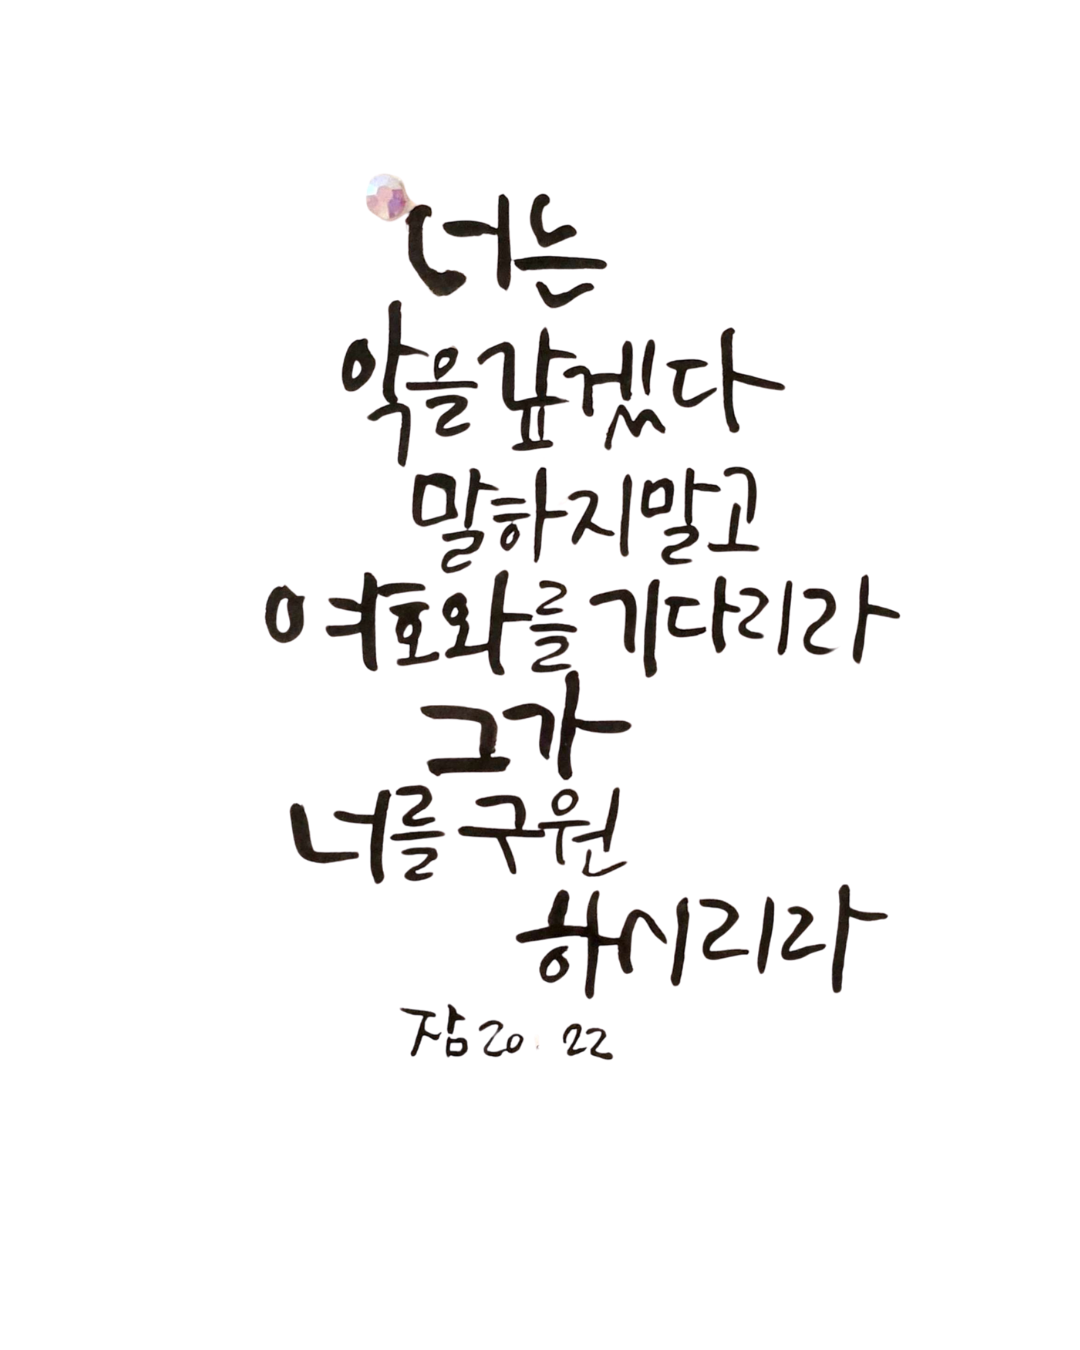 너는
악을 갚겠다
말하지 말고
여호와를 기다리라
그가
너를 구원
하시리라
잠 20. 22